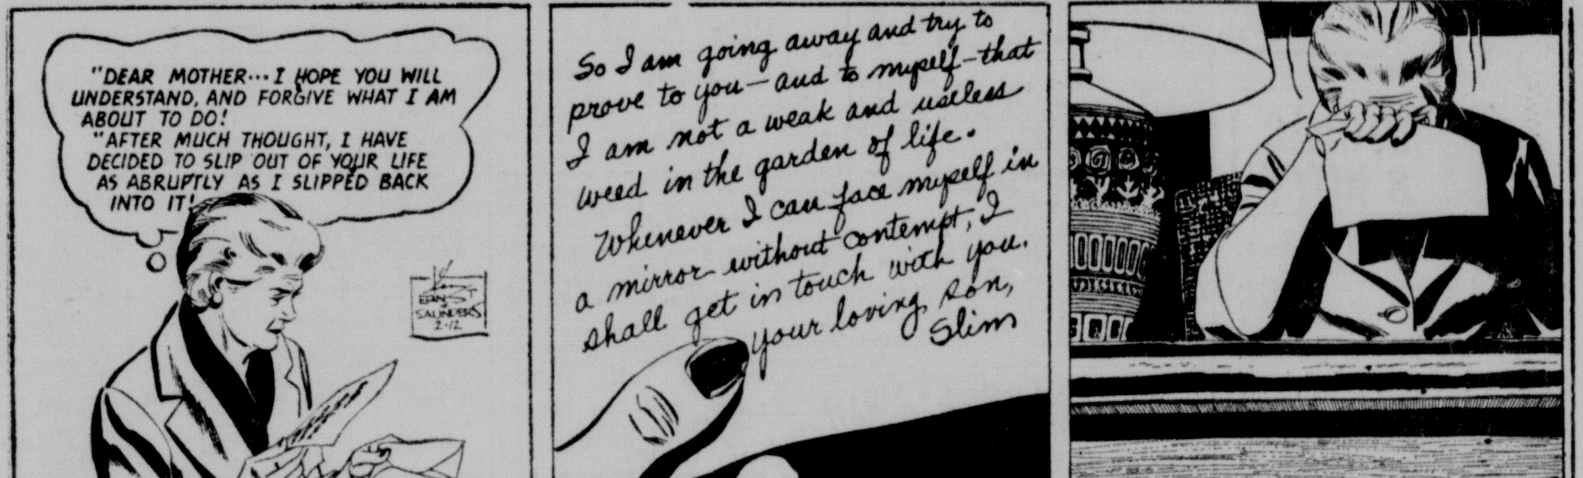 "DEAR MOTHER... I HOPE YOU WILL
UNDERSTAND, AND FORGIVE WHAT I AM
ABOUT TO DO!
"AFTER MUCH THOUGHT, I HAVE
DECIDED TO SLIP OUT OF YOUR LIFE
AS ABRUPTLY AS I SLIPPED BACK
INTO IT!
KEN
ERNST
SAUNDERS
2-12
So I am going away and try to
prove to you — and to myself — that
I am not a weak and useless
weed in the garden of life.
Whenever I can face myself in
a mirror without contempt, I
shall get in touch with you.
your loving son,
Slim